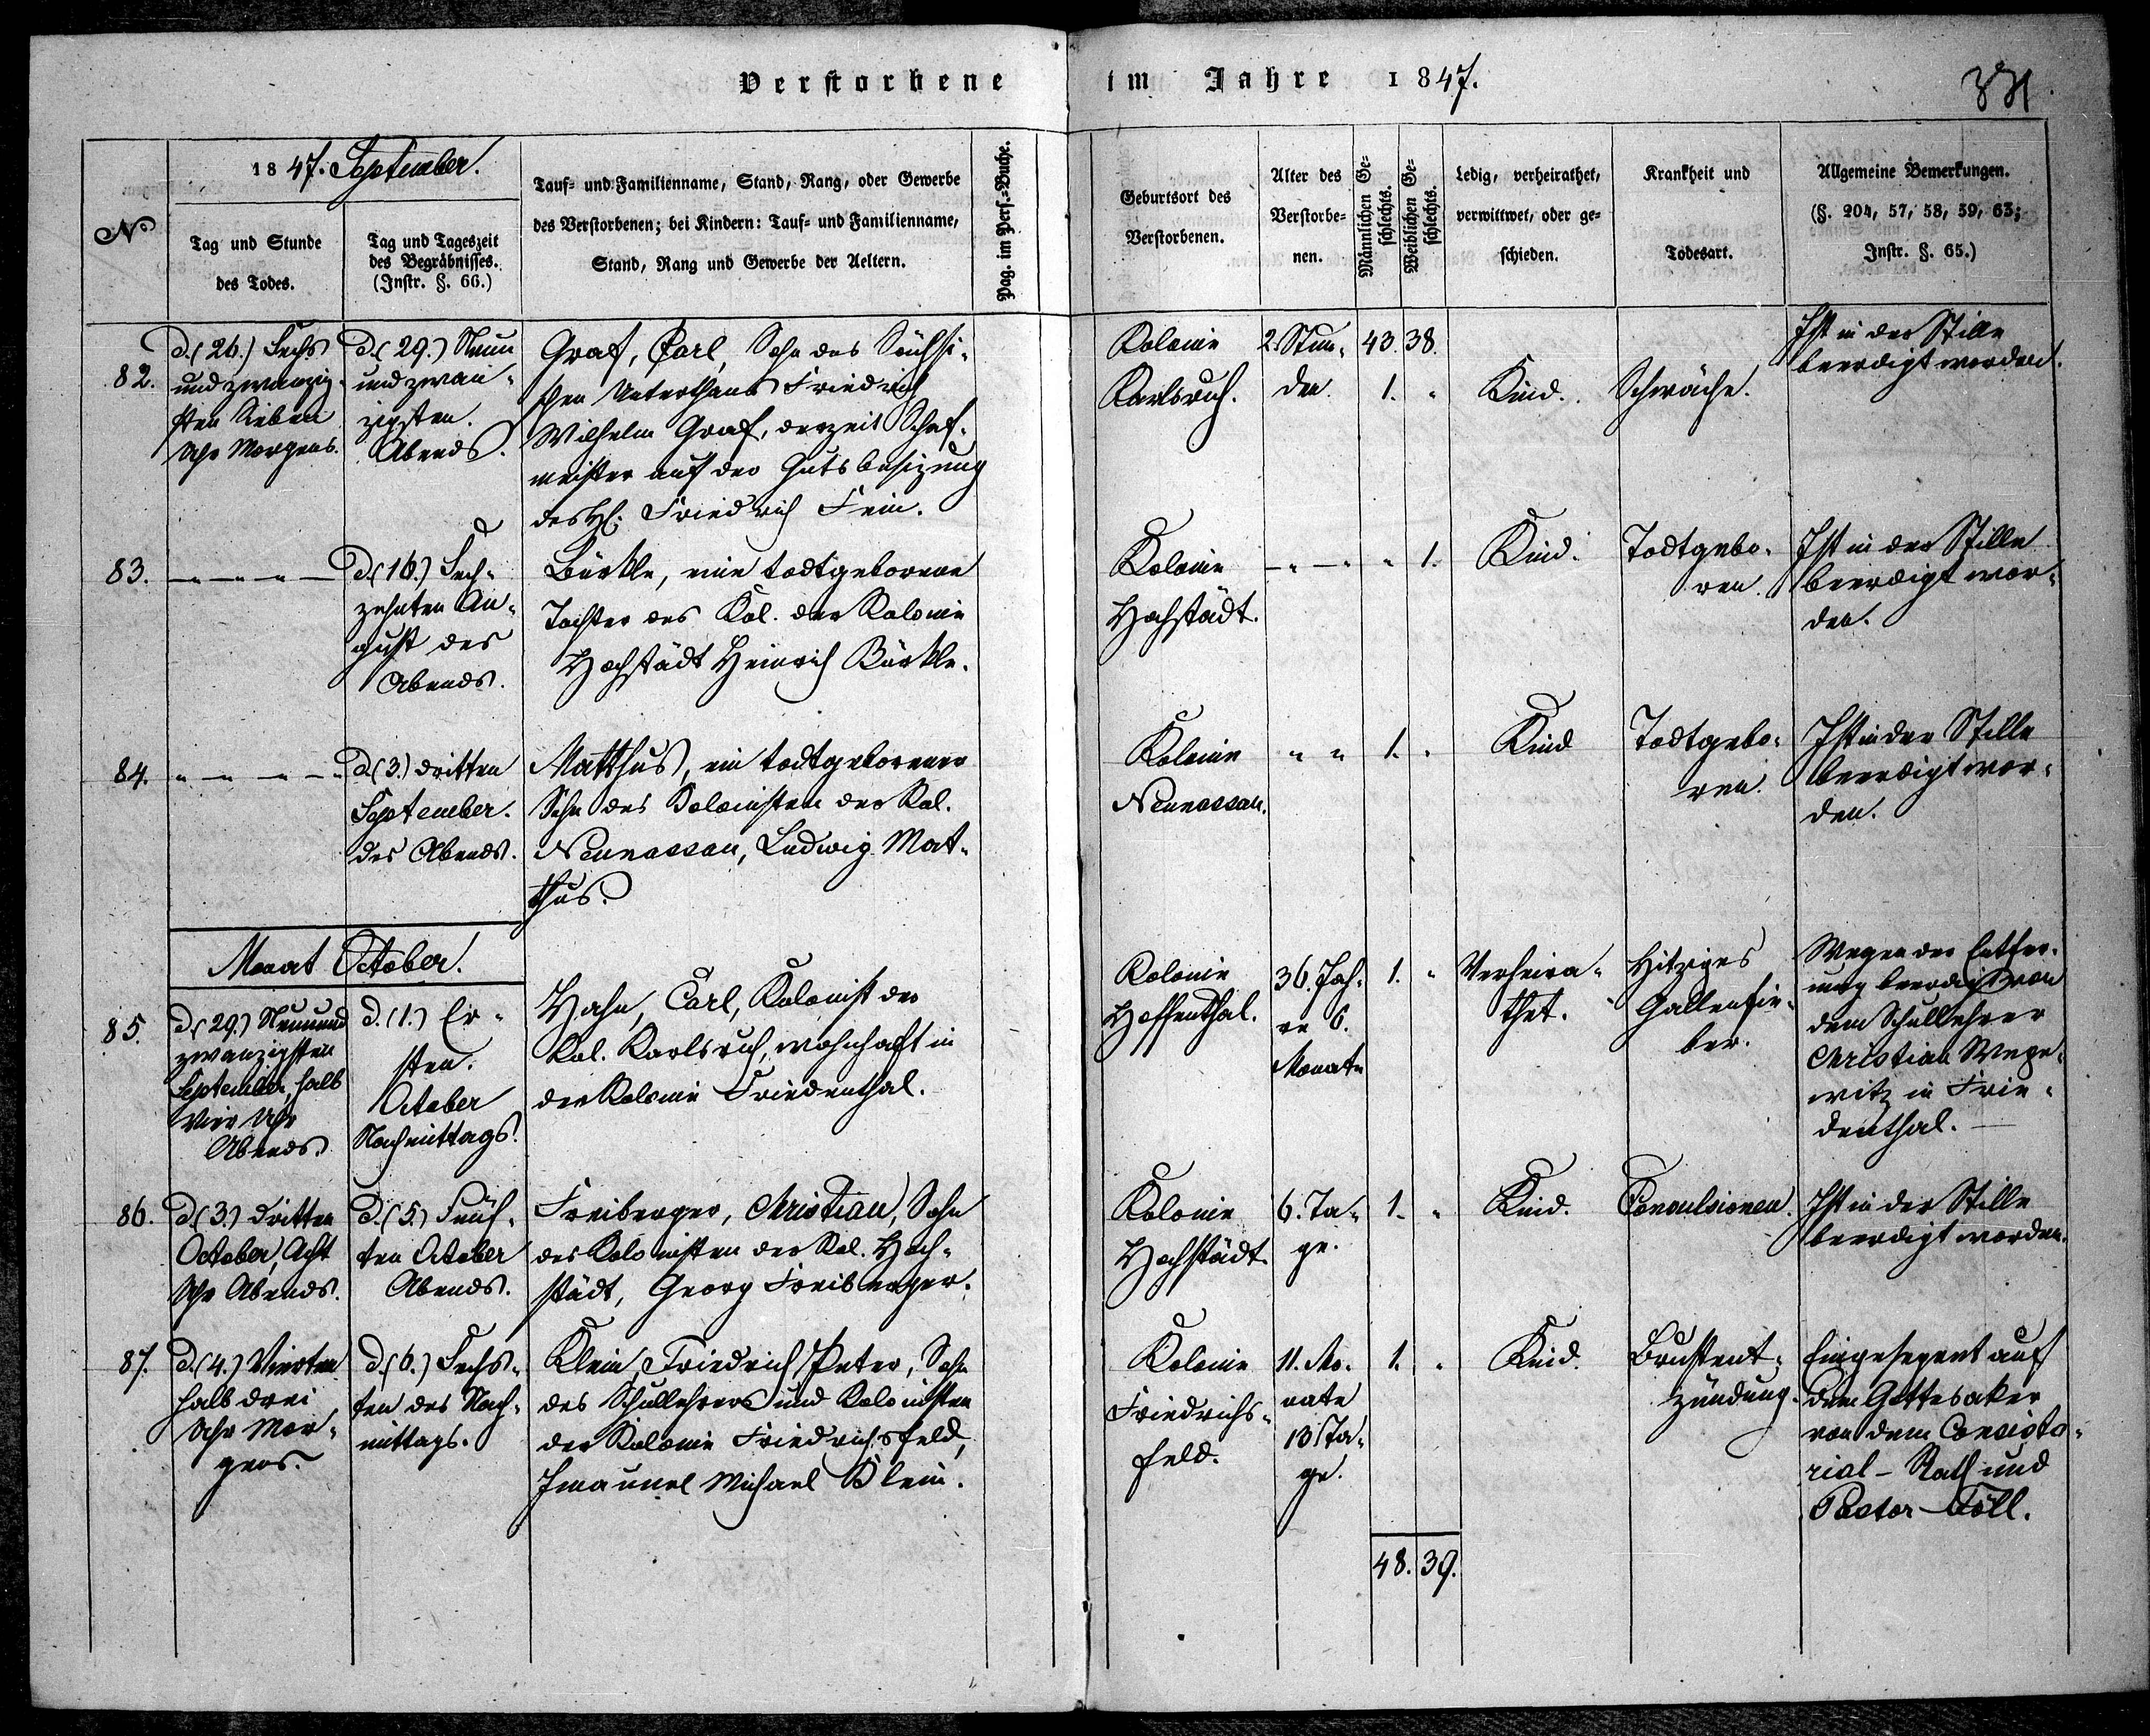 Verstorbene im Jahre 1847.
No
1847. September.
Tag und Stunde
des Todes.
Tag und Tageszeit
des Begräbnisses.
(Instr. §. 66.)
Tauf- und Familienname, Stand, Rang, oder Gewerbe
des Verstorbenen; bei Kindern: Tauf- und Familienname,
Stand, Rang und Gewerbe der Aeltern.
Pag. im Pers.-Buche.
Geburtsort des
Verstorbenen.
Alter des
Verstorbe-
nen.
Männlichen Ge-
schlechts.
Weiblichen Ge-
schlechts.
Ledig, verheirathet,
verwittwet, oder ge-
schieden.
Krankheit und
Todesart.
Allgemeine Bemerkungen.
(§. 204, 57, 58, 59, 63;
Instr. §. 65.)
82.
d. (26.) Sechs
und zwanzig-
sten Sieben
Uhr Morgens.
d. (29.) Neun
und zwan-
zigsten.
Abends.
Graf, Carl, Sohn des Sächsi-
schen Unterthans Friedrich
Wilhelm Graf, derzeit Schaf-
meister auf der Gutsbesizung
des H: Friedrich Fein.
Kolonie
Karlsruh.
2. Stun-
den.
43. 38.
1. "
Kind.
Schwäche.
Ist in der Stille
beerdigt worden.
83.
d. (16.) Sech-
zehnten Au-
gust des
Abends.
Bürkle, eine todtgeborene
Tochter des Kol. der Kolonie
Hochstädt Heinrich Bürkle.
Kolonie
Hochstädt.
" 1.
Kind.
Todtgebo-
ren.
Ist in der Stille
beerdigt wor-
den.
84.
d. (3.) dritten
September.
des Abends.
Matthus, ein todtgeborener
Sohn des Kolonisten der Kol.
Neunassau, Ludwig Mat-
thus.
Kolonie
Neunassau.
" "
1. "
Kind
Todtgebo-
ren.
Ist in der Stille
beerdigt wor-
den.
Monat October.
85.
d. (29.) Neunund
zwanzigsten
September, halb
Vier Uhr
Abends.
d. (1.) Er-
sten.
October
Nachmittags.
Hahn, Carl, Kolonist der
Kol. Karlsruh, wohnhaft in
der Kolonie Friedenthal.
Kolonie
Hoffenthal.
36. Jah-
re 6.
Monate
1. "
Verheira-
thet.
Hitziges
Gallenfie-
ber.
Wegen der Entfer-
nung beerdigt von
dem Schullehrer
Christian Wege-
witz in Frie-
denthal.
86.
d. (3.) dritten
October, Acht
Uhr Abends.
d. (5.) Fünf-
ten October
Abends.
Freiberger, Christian, Sohn
des Kolonisten der Kol. Hoch-
städt, Georg Freiberger.
Kolonie
Hochstädt.
6. Ta-
ge.
1. "
Kind.
Convulsionen.
Ist in der Stille
beerdigt worden.
87.
d. (4.) Vierten
halb drei
Uhr Mor-
gens.
d. (6.) Sechs-
ten des Nach-
mittags.
Klein, Friedrich Peter, Sohn
des Schullehrers und Kolonisten
der Kolonie Friedrichsfeld,
Imanuel Michael Klein.
Kolonie
Friedrichs-
feld.
11. Mo-
nate
13 Ta-
ge.
1. "
Kind.
Brustent-
zündung.
Eingesegent auf
dem Gottesaker
von dem Consisto-
rial-Rath und
Pastor Föll.
48. 39.